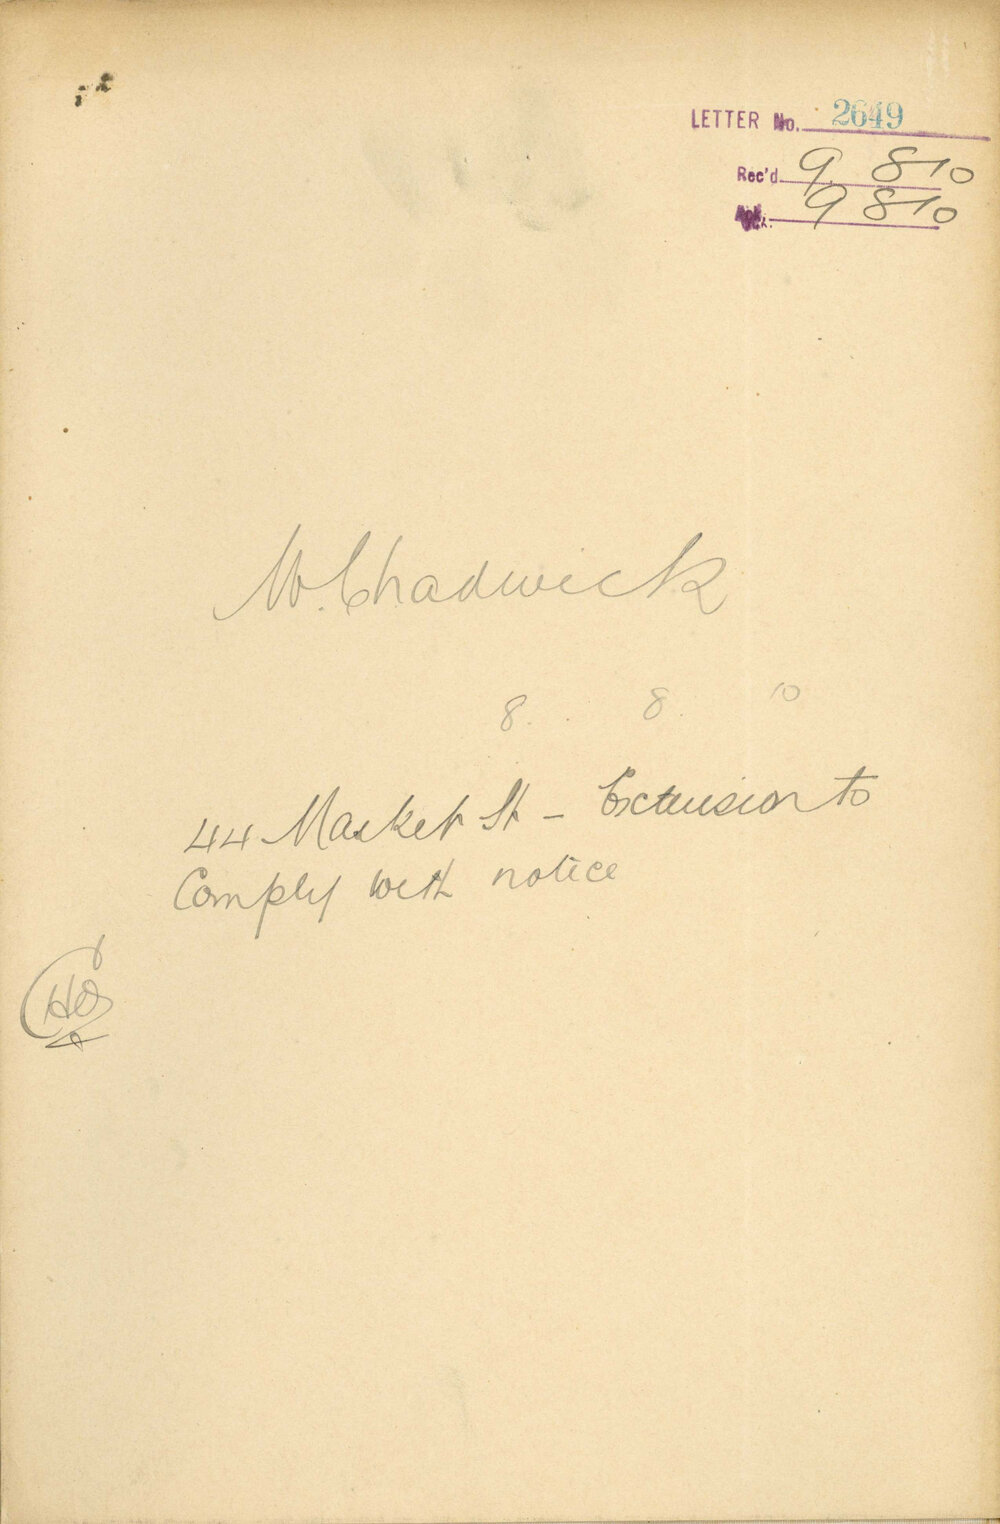 LETTER No. 2649
Rec'd 9. 8 10
Ack. 9 8 10
W. Chadwick
8. 8. 10
44 Market St - Extension to
Comply with notice